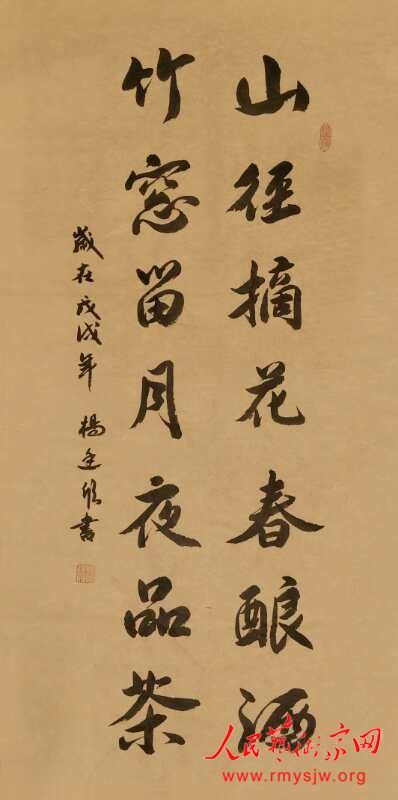 山径摘花春酿酒
竹窓留月夜品茶
歲在戊戌年 楊廷欣書
人民艺术家网
www.rmysjw.org